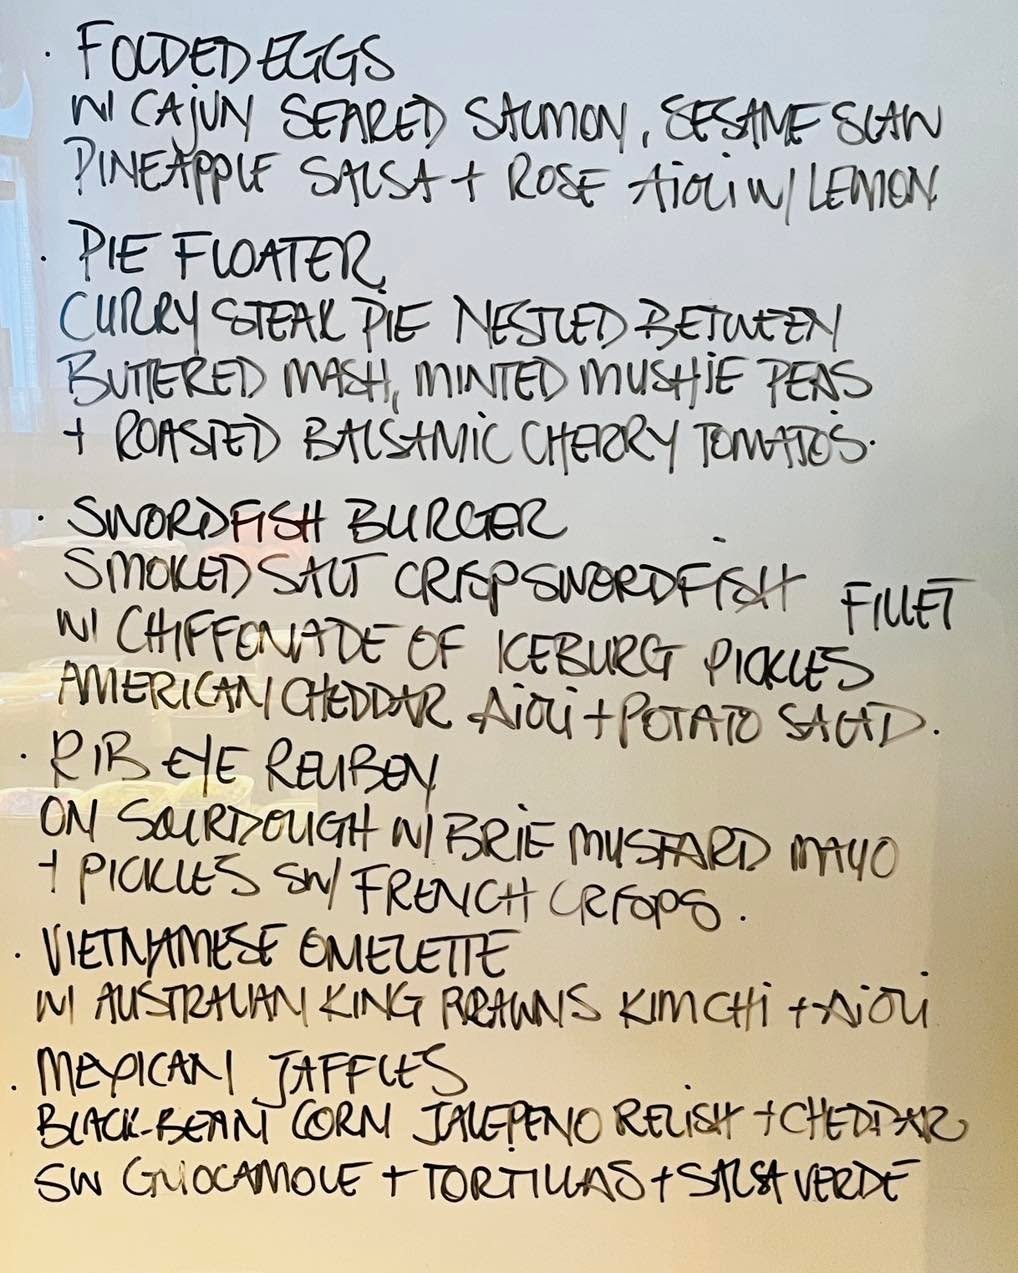 · FOLDED EGGS
W/ CAJUN SEARED SALMON, SESAME SLAW
PINEAPPLE SALSA + ROSE AIOLI W/ LEMON
· PIE FLOATER
CURRY STEAK PIE NESTLED BETWEEN
BUTTERED MASH, MINTED MUSHIE PEAS
+ ROASTED BALSAMIC CHERRY TOMATOS.
· SWORDFISH BURGER
SMOKED SALT CRISP SWORDFISH FILLET
W/ CHIFFONADE OF ICEBURG PICKLES
AMERICAN CHEDDAR AIOLI + POTATO SALAD.
· RIB EYE REUBEN
ON SOURDOUGH W/ BRIE MUSTARD MAYO
+ PICKLES SW/ FRENCH CRISPS.
· VIETNAMESE OMELETTE
W/ AUSTRALIAN KING PRAWNS KIMCHI + AIOLI
· MEXICAN JAFFLES
BLACK-BEAN CORN JALEPENO RELISH + CHEDDAR
SW GUOCAMOLE + TORTILLAS + SALSA VERDE